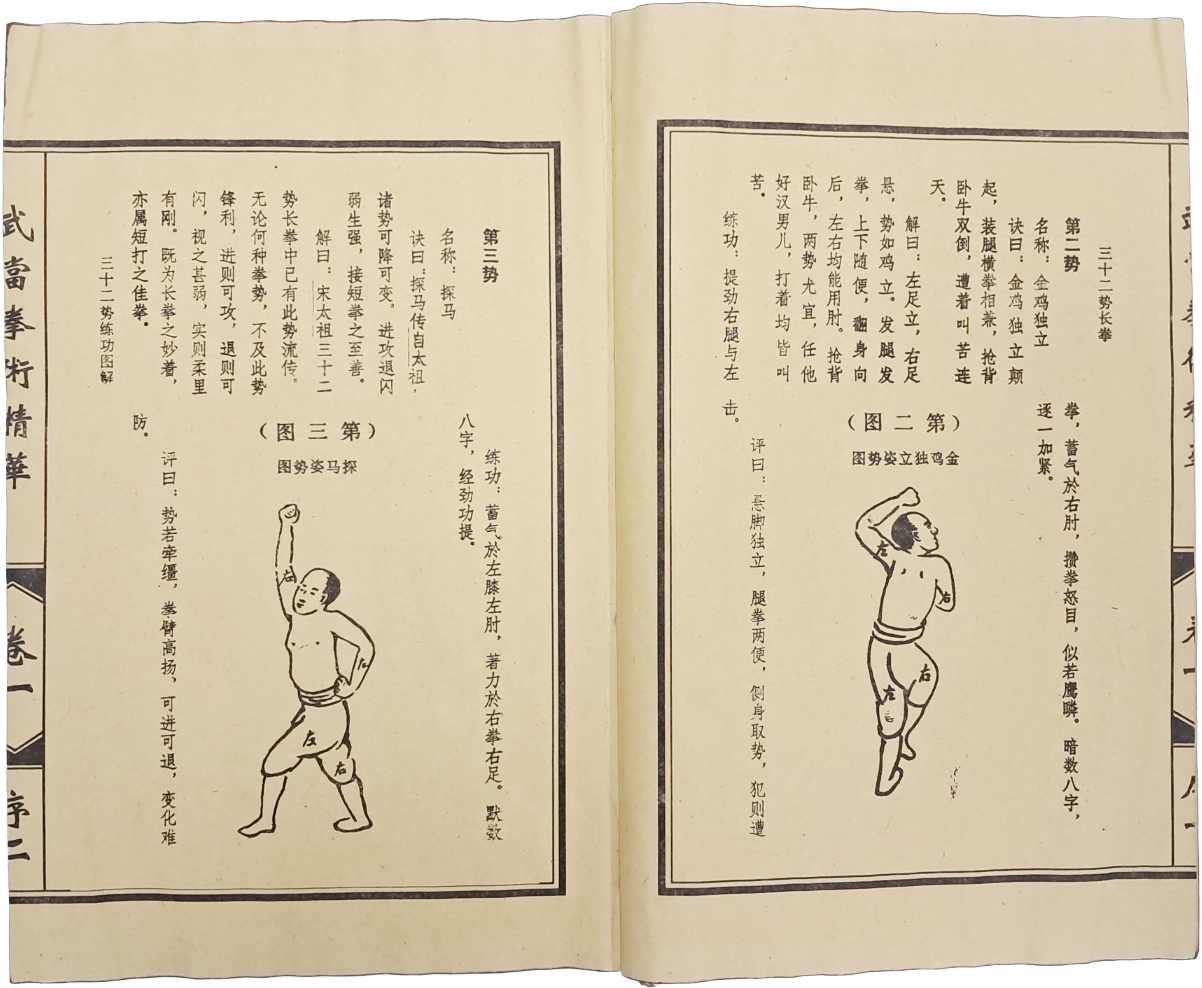 三十二势长拳
第二势
名称：金鸡独立
诀曰：金鸡独立颠
起，装腿横拳相兼，抢背
卧牛双倒，遭着叫苦连
天。
解曰：左足立，右足
悬，势如鸡立。发腿发
拳，上下随便，翻身向
后，左右均能用肘。抢背
卧牛，两势尤宜，任他
好汉男儿，打着均皆叫
苦。
练功：提劲右腿与左
拳，蓄气於右肘，攒拳怒目，似若鹰瞵。暗数八字，
逐一加紧。
（第二图）
金鸡独立姿势图
左
右
右
左
评曰：悬脚独立，腿拳两便，侧身取势，犯则遭
击。
第三势
名称：探马
诀曰：探马传自太祖，
诸势可降可变。进攻退闪
弱生强，接短拳之至善。
解曰：宋太祖三十二
势长拳中已有此势流传。
无论何种拳势，不及此势
锋利，进则可攻，退则可
闪，视之甚弱，实则柔里
有刚。既为长拳之妙着，
亦属短打之佳拳。
练功：蓄气於左膝左肘，著力於右拳右足。默数
八字，经劲功提。
（第三图）
探马姿势图
右
左
左
右
评曰：势若牵缰，拳臂高扬，可进可退，变化难
防。
三十二势练功图解
武當拳術精華
卷一
序二